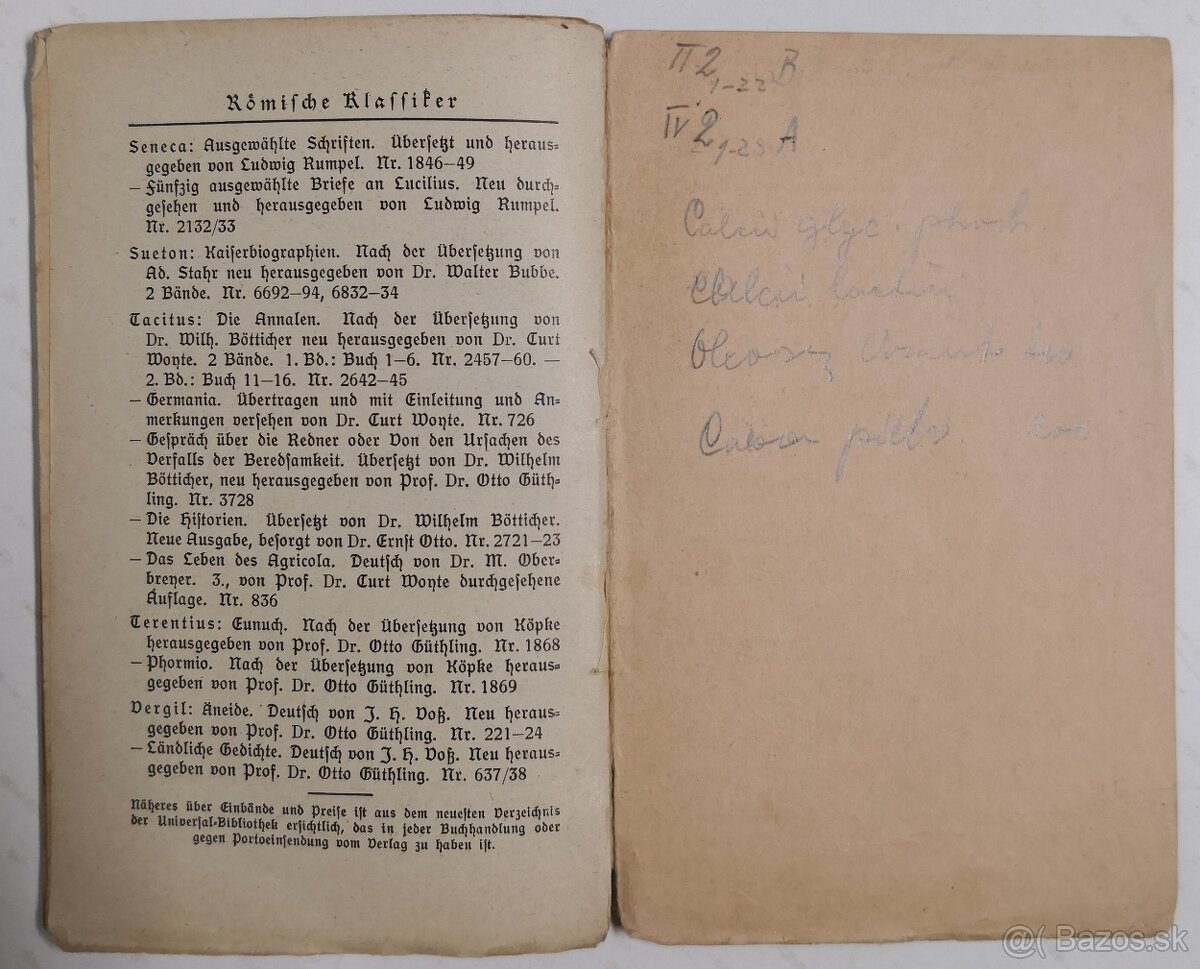 Römische Klassiker
Seneca: Ausgewählte Schriften. Übersetzt und heraus-
gegeben von Ludwig Rumpel. Nr. 1846–49
– Fünfzig ausgewählte Briefe an Lucilius. Neu durch-
gesehen und herausgegeben von Ludwig Rumpel.
Nr. 2132/33
Sueton: Kaiserbiographien. Nach der Übersetzung von
Ad. Stahr neu herausgegeben von Dr. Walter Bubbe.
2 Bände. Nr. 6692–94, 6832–34
Tacitus: Die Annalen. Nach der Übersetzung von
Dr. Wilh. Bötticher neu herausgegeben von Dr. Curt
Woyte. 2 Bände. 1. Bd.: Buch 1–6. Nr. 2457–60. —
2. Bd.: Buch 11–16. Nr. 2642–45
– Germania. Übertragen und mit Einleitung und An-
merkungen versehen von Dr. Curt Woyte. Nr. 726
– Gespräch über die Redner oder Von den Ursachen des
Verfalls der Beredsamkeit. Übersetzt von Dr. Wilhelm
Bötticher, neu herausgegeben von Prof. Dr. Otto Güth-
ling. Nr. 3728
– Die Historien. Übersetzt von Dr. Wilhelm Bötticher.
Neue Ausgabe, besorgt von Dr. Ernst Otto. Nr. 2721–23
– Das Leben des Agricola. Deutsch von Dr. M. Ober-
breyer. 3., von Prof. Dr. Curt Woyte durchgesehene
Auflage. Nr. 836
Terentius: Eunuch. Nach der Übersetzung von Köpke
herausgegeben von Prof. Dr. Otto Güthling. Nr. 1868
– Phormio. Nach der Übersetzung von Köpke heraus-
gegeben von Prof. Dr. Otto Güthling. Nr. 1869
Vergil: Äneide. Deutsch von J. H. Voß. Neu heraus-
gegeben von Prof. Dr. Otto Güthling. Nr. 221–24
– Ländliche Gedichte. Deutsch von J. H. Voß. Neu heraus-
gegeben von Prof. Dr. Otto Güthling. Nr. 637/38
Näheres über Einbände und Preise ist aus dem neuesten Verzeichnis
der Universal-Bibliothek ersichtlich, das in jeder Buchhandlung oder
gegen Portoeinsendung vom Verlag zu haben ist.
II 2 1-22 B
IV 2 A
Calcii glyc. phosh.
lactici
@( Bazos.sk